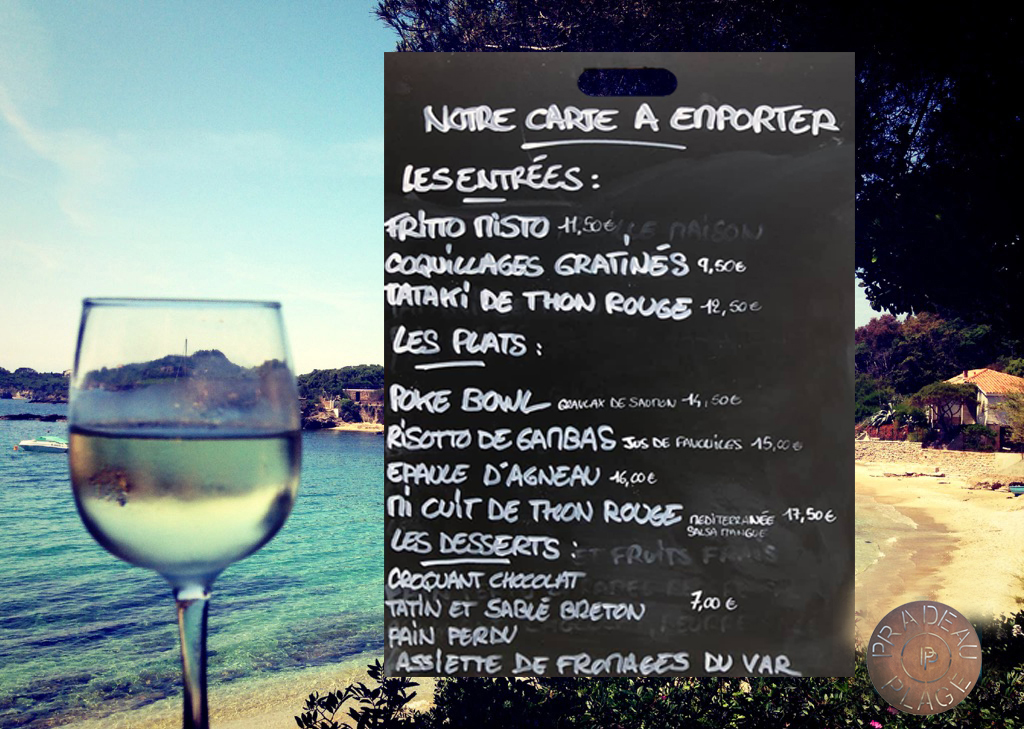 NOTRE CARTE A EMPORTER
LES ENTRÉES :
FRITTO MISTO 11,50€
COQUILLAGES GRATINÉS 9,50€
TATAKI DE THON ROUGE 12,50€
LES PLATS :
POKE BOWL GRAVLAX DE SAUMON 14,50€
RISOTTO DE GAMBAS JUS DE FAVOUILLES 15,00€
EPAULE D'AGNEAU 16,00€
MI CUIT DE THON ROUGE MEDITERRANÉE 17,50€
SALSA MANGUE
LES DESSERTS :
CROQUANT CHOCOLAT
TATIN ET SABLÉ BRETON 7,00€
PAIN PERDU
ASSIETTE DE FROMAGES DU VAR
PRADEAU
PLAGE